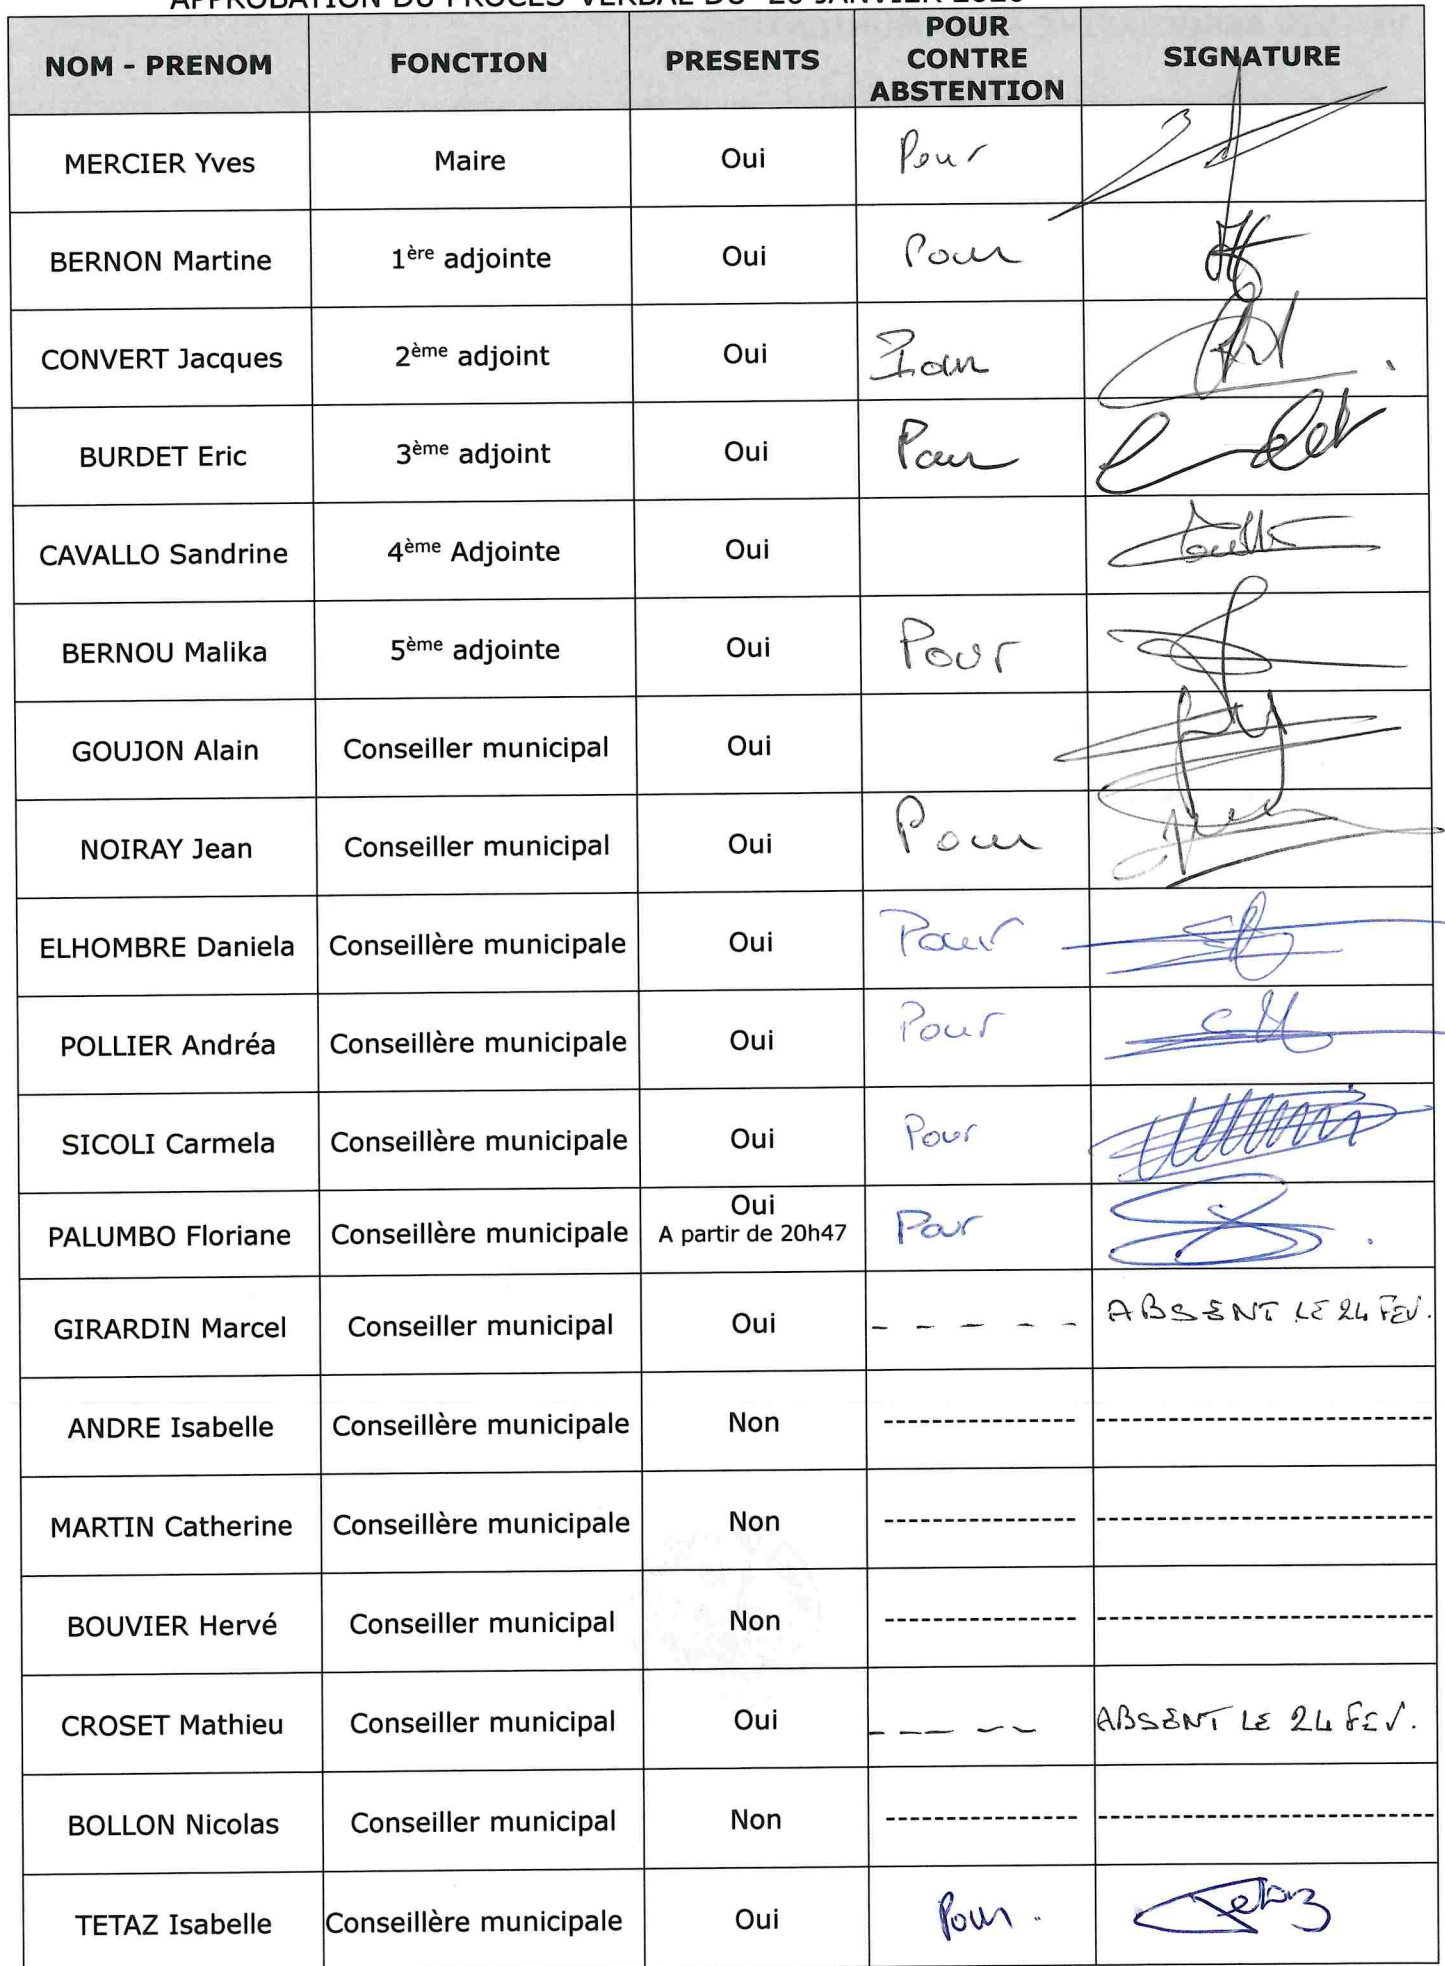 APPROBATION DU PROCES-VERBAL DU 20 JANVIER 2020
NOM - PRENOM FONCTION PRESENTS POUR CONTRE ABSTENTION SIGNATURE
MERCIER Yves Maire Oui Pour
BERNON Martine 1ère adjointe Oui Pour
CONVERT Jacques 2ème adjoint Oui Pour
BURDET Eric 3ème adjoint Oui Pour
CAVALLO Sandrine 4ème Adjointe Oui
BERNOU Malika 5ème adjointe Oui Pour
GOUJON Alain Conseiller municipal Oui
NOIRAY Jean Conseiller municipal Oui Pour
ELHOMBRE Daniela Conseillère municipale Oui Pour
POLLIER Andréa Conseillère municipale Oui Pour
SICOLI Carmela Conseillère municipale Oui Pour
PALUMBO Floriane Conseillère municipale Oui A partir de 20h47 Pour
GIRARDIN Marcel Conseiller municipal Oui - - - - - ABSENT LE 24 FEV.
ANDRE Isabelle Conseillère municipale Non --------------- --------------------------
MARTIN Catherine Conseillère municipale Non --------------- --------------------------
BOUVIER Hervé Conseiller municipal Non --------------- --------------------------
CROSET Mathieu Conseiller municipal Oui - - - - - ABSENT LE 24 FEV.
BOLLON Nicolas Conseiller municipal Non --------------- --------------------------
TETAZ Isabelle Conseillère municipale Oui Pour. Tetaz